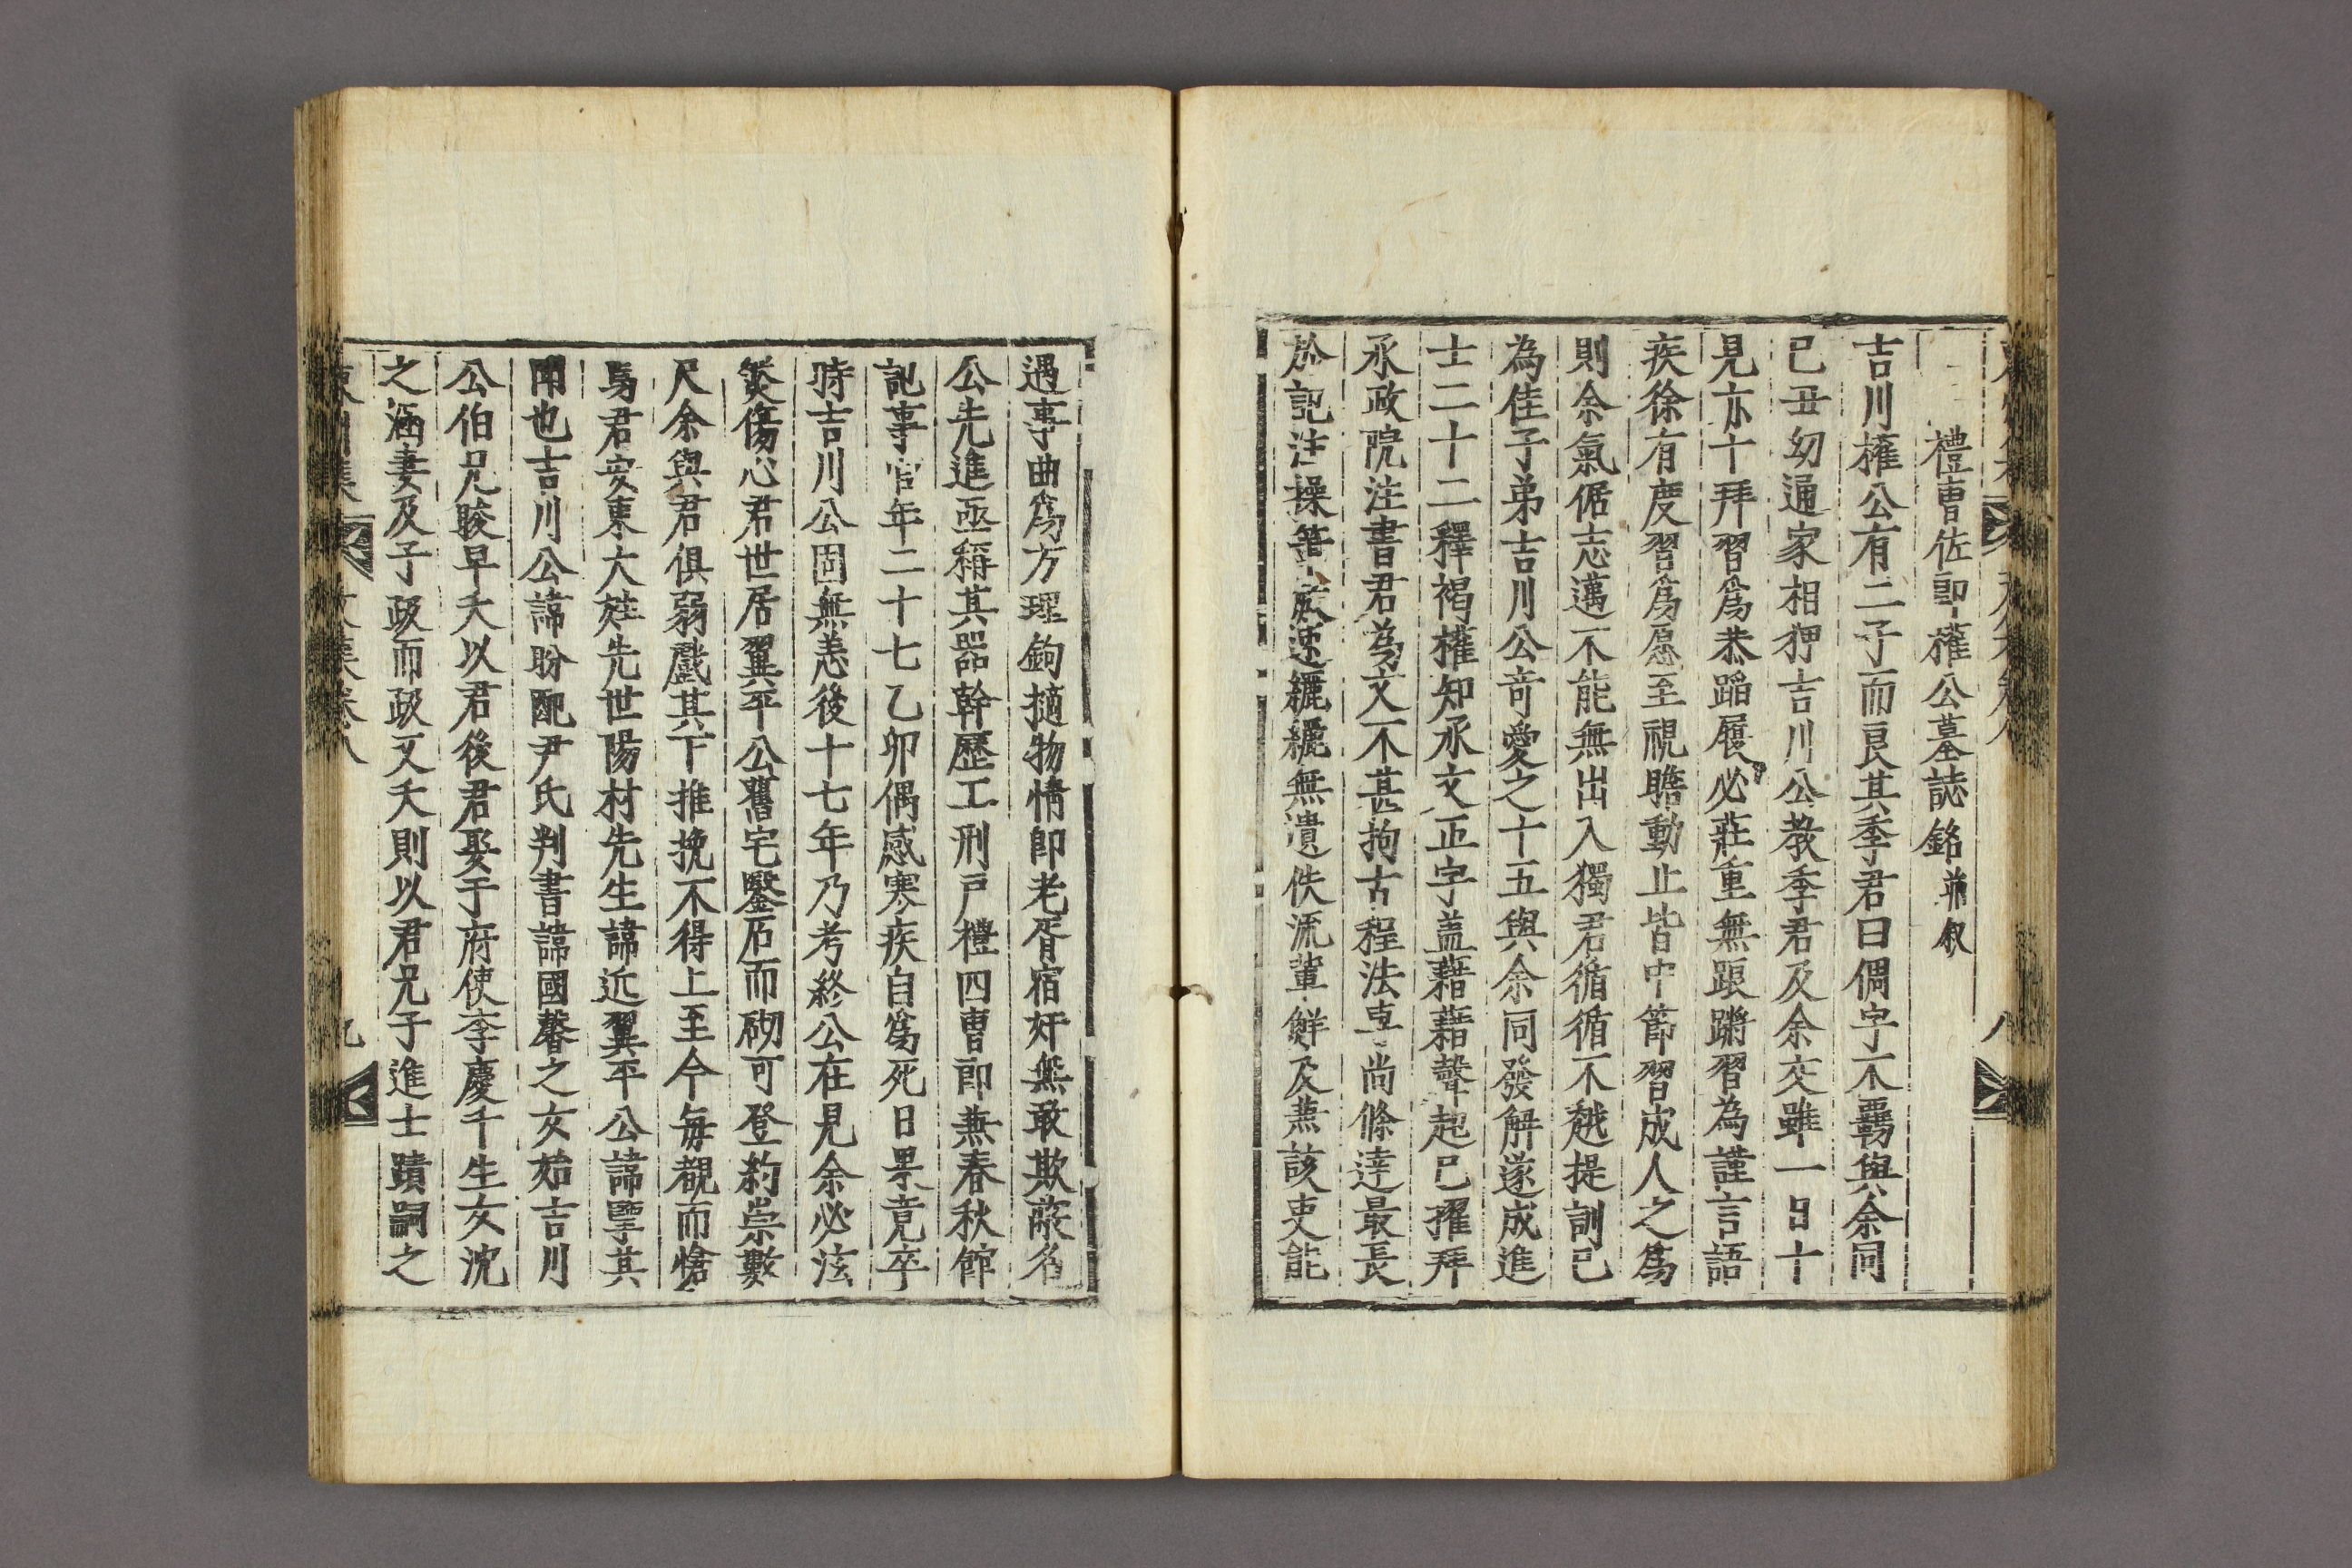 禮曹佐郞權公墓誌銘 幷敘
吉川權公有二子而良其季君曰倜字不羈與余同
己丑幼通家相狎吉川公敎季君及余交雖一日十
見亦十拜習爲恭蹈履必莊重無踉蹡習為謹言語
疾徐有度習爲愿至視瞻動止皆中節習成人之爲
則余氣倨志邁不能無出入獨君循循不越提訓已
為佳子弟吉川公奇愛之十五與余同發解遂成進
士二十二釋褐權知承文正字盖藉藉聲起已擢拜
承政院注書君為文不甚拘古程法專尚條達最長
於記注操筆疾速纚纚無遺佚流輩鮮及兼該吏能
遇事曲爲方理鉤擿物情卽老胥宿奸無敢欺蔽名
公先進亟稱其器幹歷工刑戶禮四曹郞兼春秋館
記事官年二十七乙卯偶感寒疾自爲死日果竟卒
時吉川公固無恙後十七年乃考終公在見余必泫
然傷心君世居翼平公舊宅鑿石而砌可登約崇數
尺余與君俱弱戲其下推挽不得上至今每覩而愴
焉君安東大姓先世陽村先生諱近翼平公諱擥其
聞也吉川公諱盼配尹氏判書諱國馨之女始吉川
公伯兄晙早夭以君後君娶于府使李慶千生女沈
之涵妻及子敃而敃又夭則以君兄子進士蹟嗣之
東州集 文集卷八 九